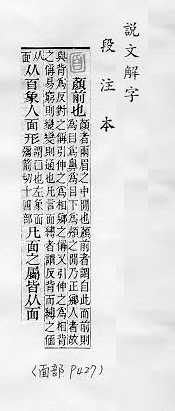 說文解字
段注本
顏前也顏者兩眉之中閒也顏前者謂自此而前則
爲目爲鼻爲目下爲頰之閒乃正鄉人者故
與背爲反對之偁引伸之爲相鄉之偁又引伸之爲相背
之偁易窮則變變則通也凡言面縛者謂反背而縛之偭
从面从𦣻象人面形謂囗也左象面
彌箭切十四部凡面之屬皆从面
(面部 P427)